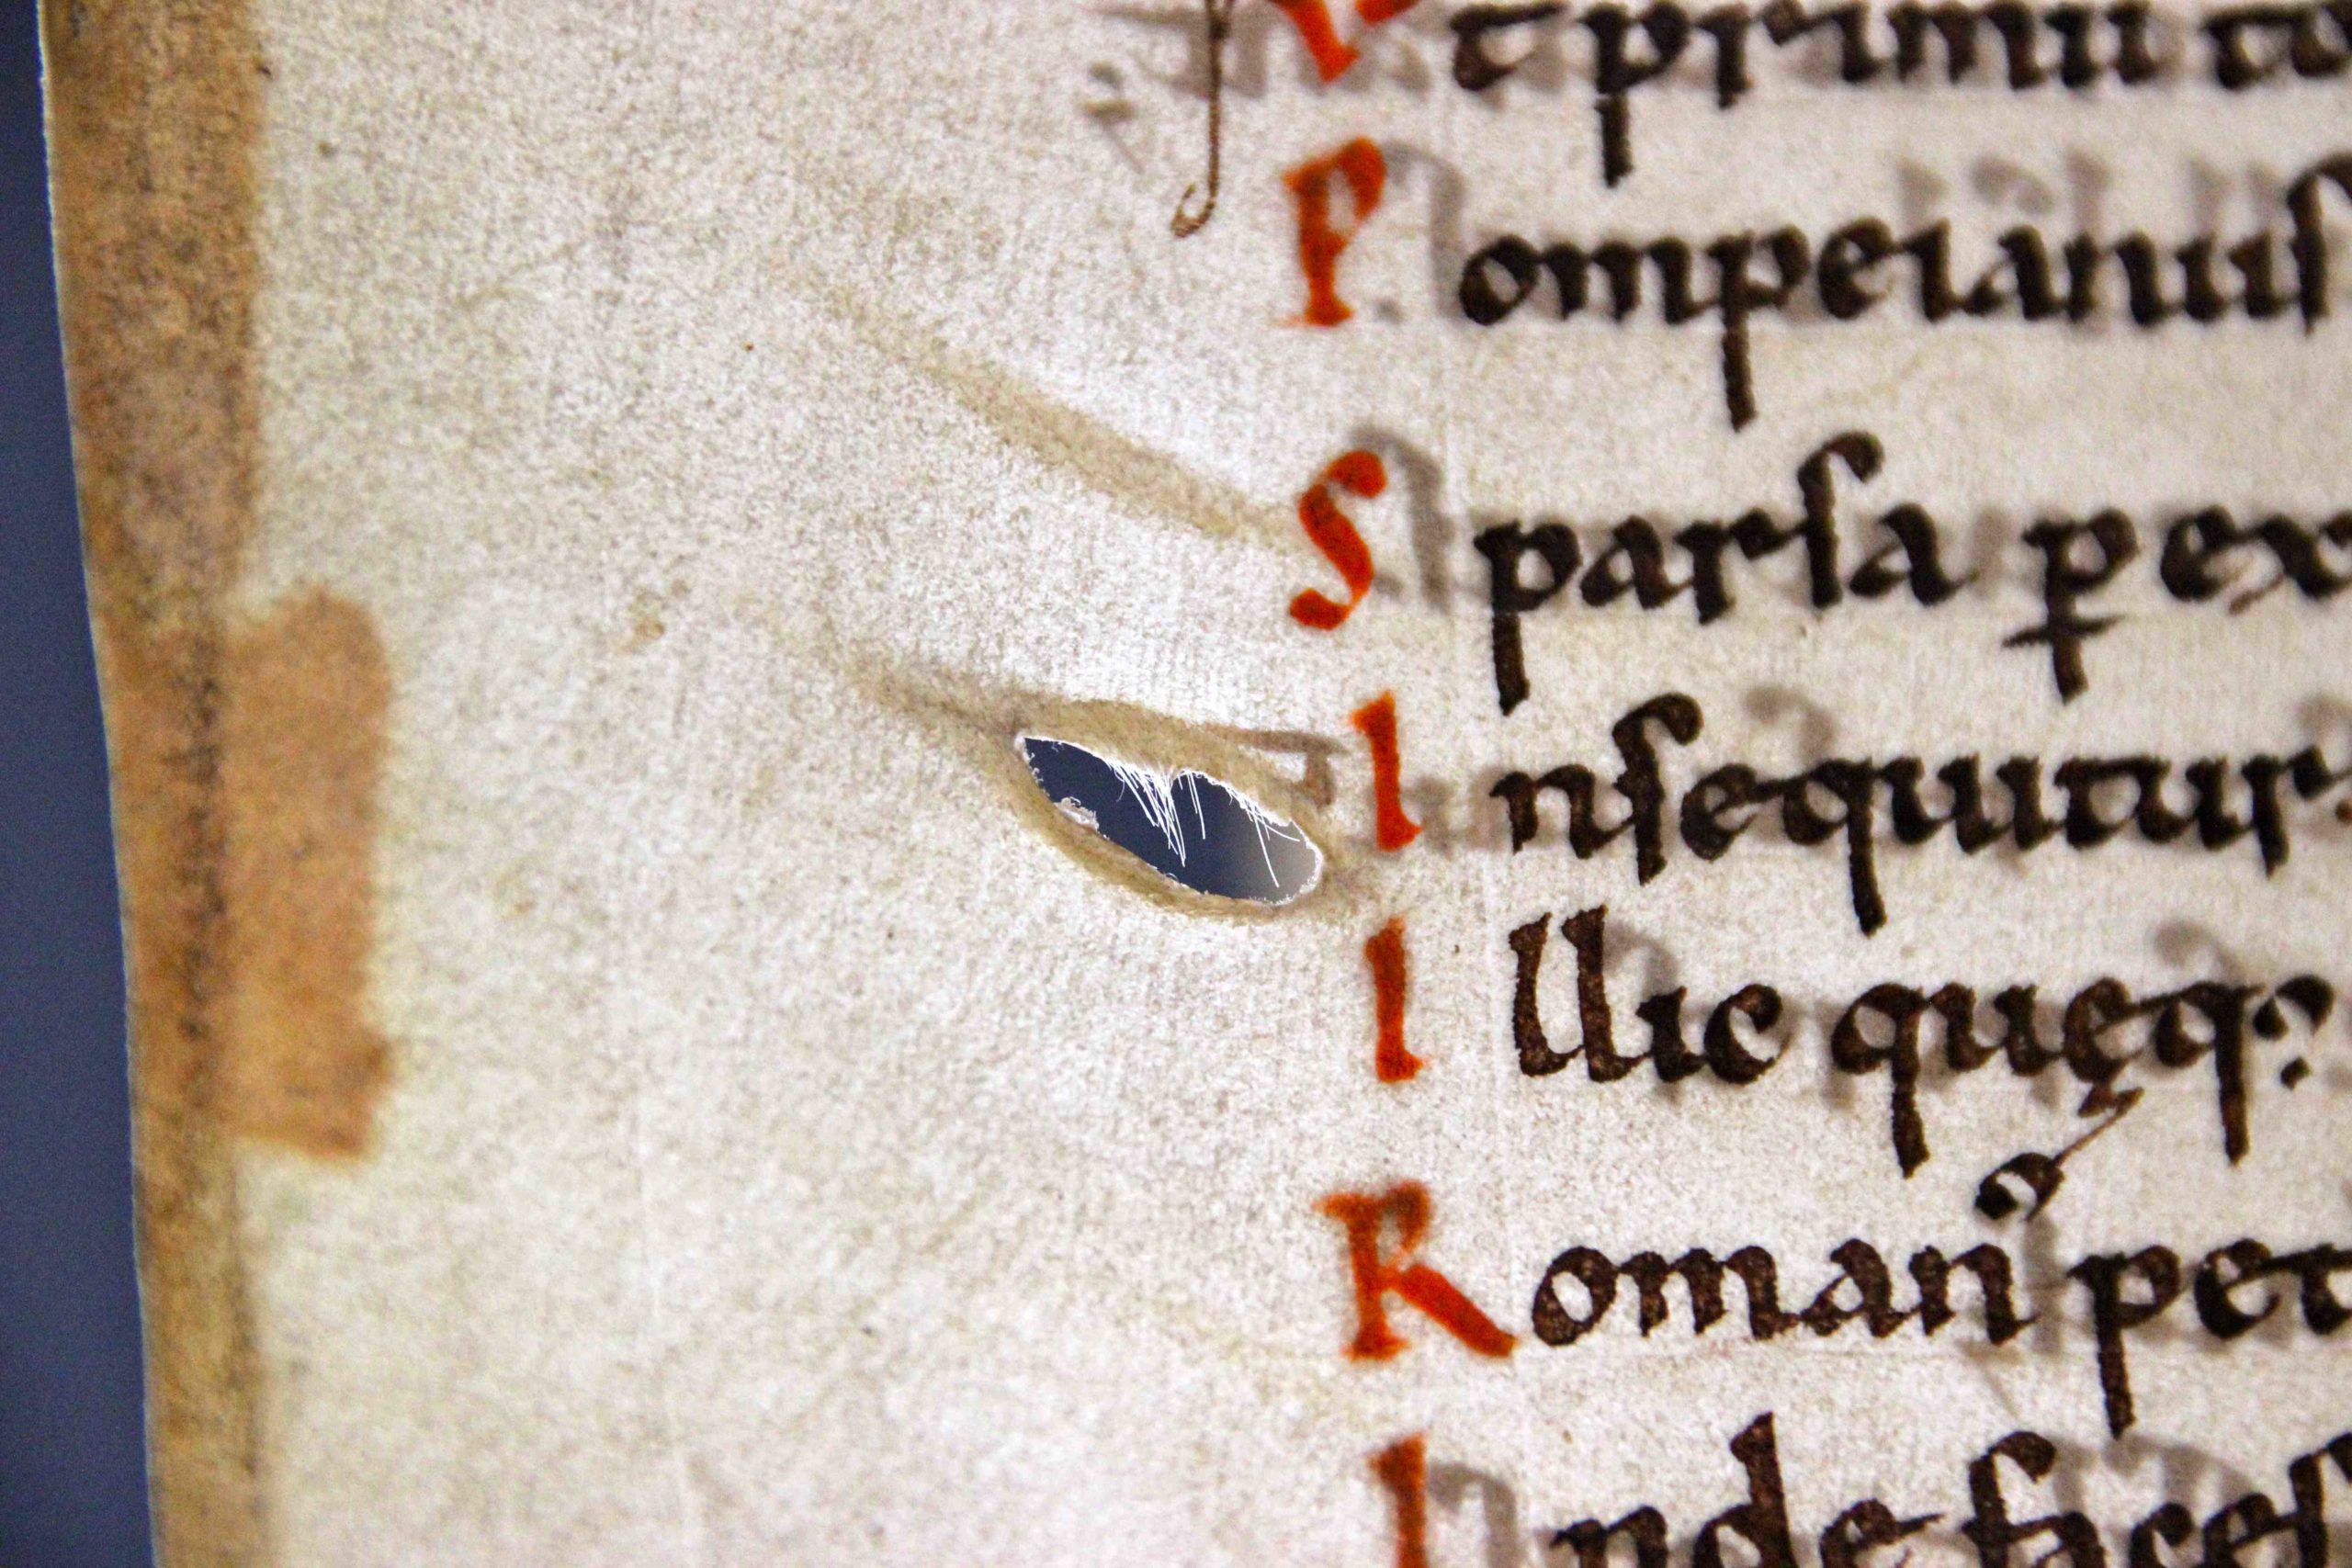 Vt primū
Pompeianuſ
Sparſa ꝑ ex
Inſequitur
Illic quęq;
Roman᷒ pet
Inde faceſ